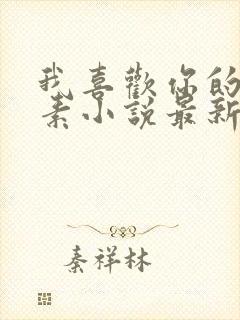 我喜歡你的
素小說最新
秦祥林